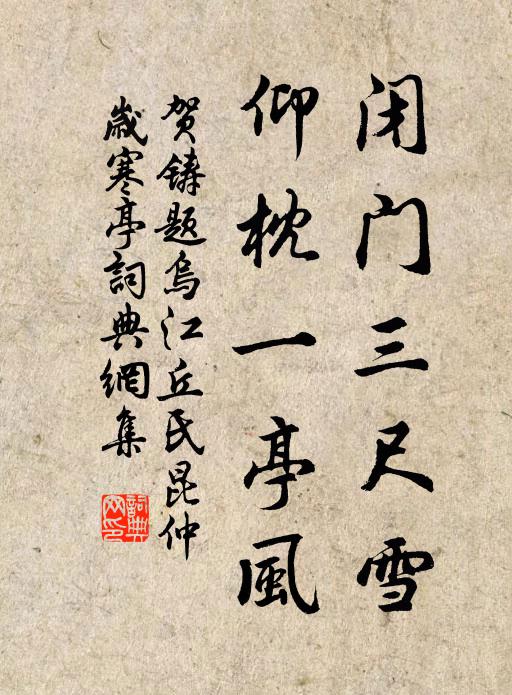 闭门三尺雪
仰枕一亭風
贺铸题烏江丘氏昆仲
歲寒亭詞典網集
詞典
网印